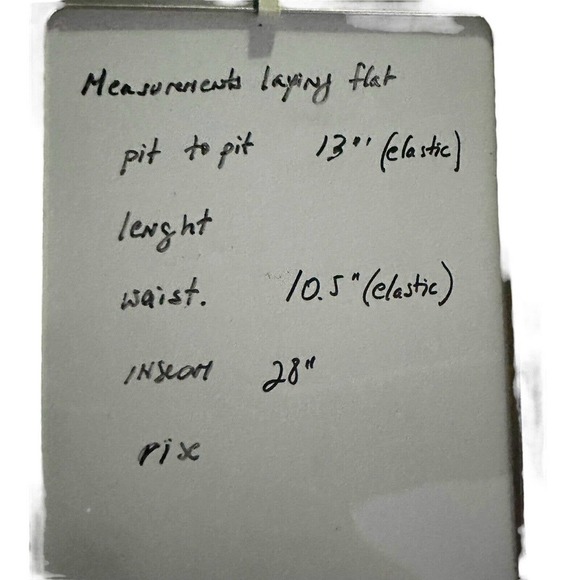 Measurements laying flat
pit to pit 13"' (elastic)
lenght
waist. 10.5" (elastic)
INseam 28"
rise